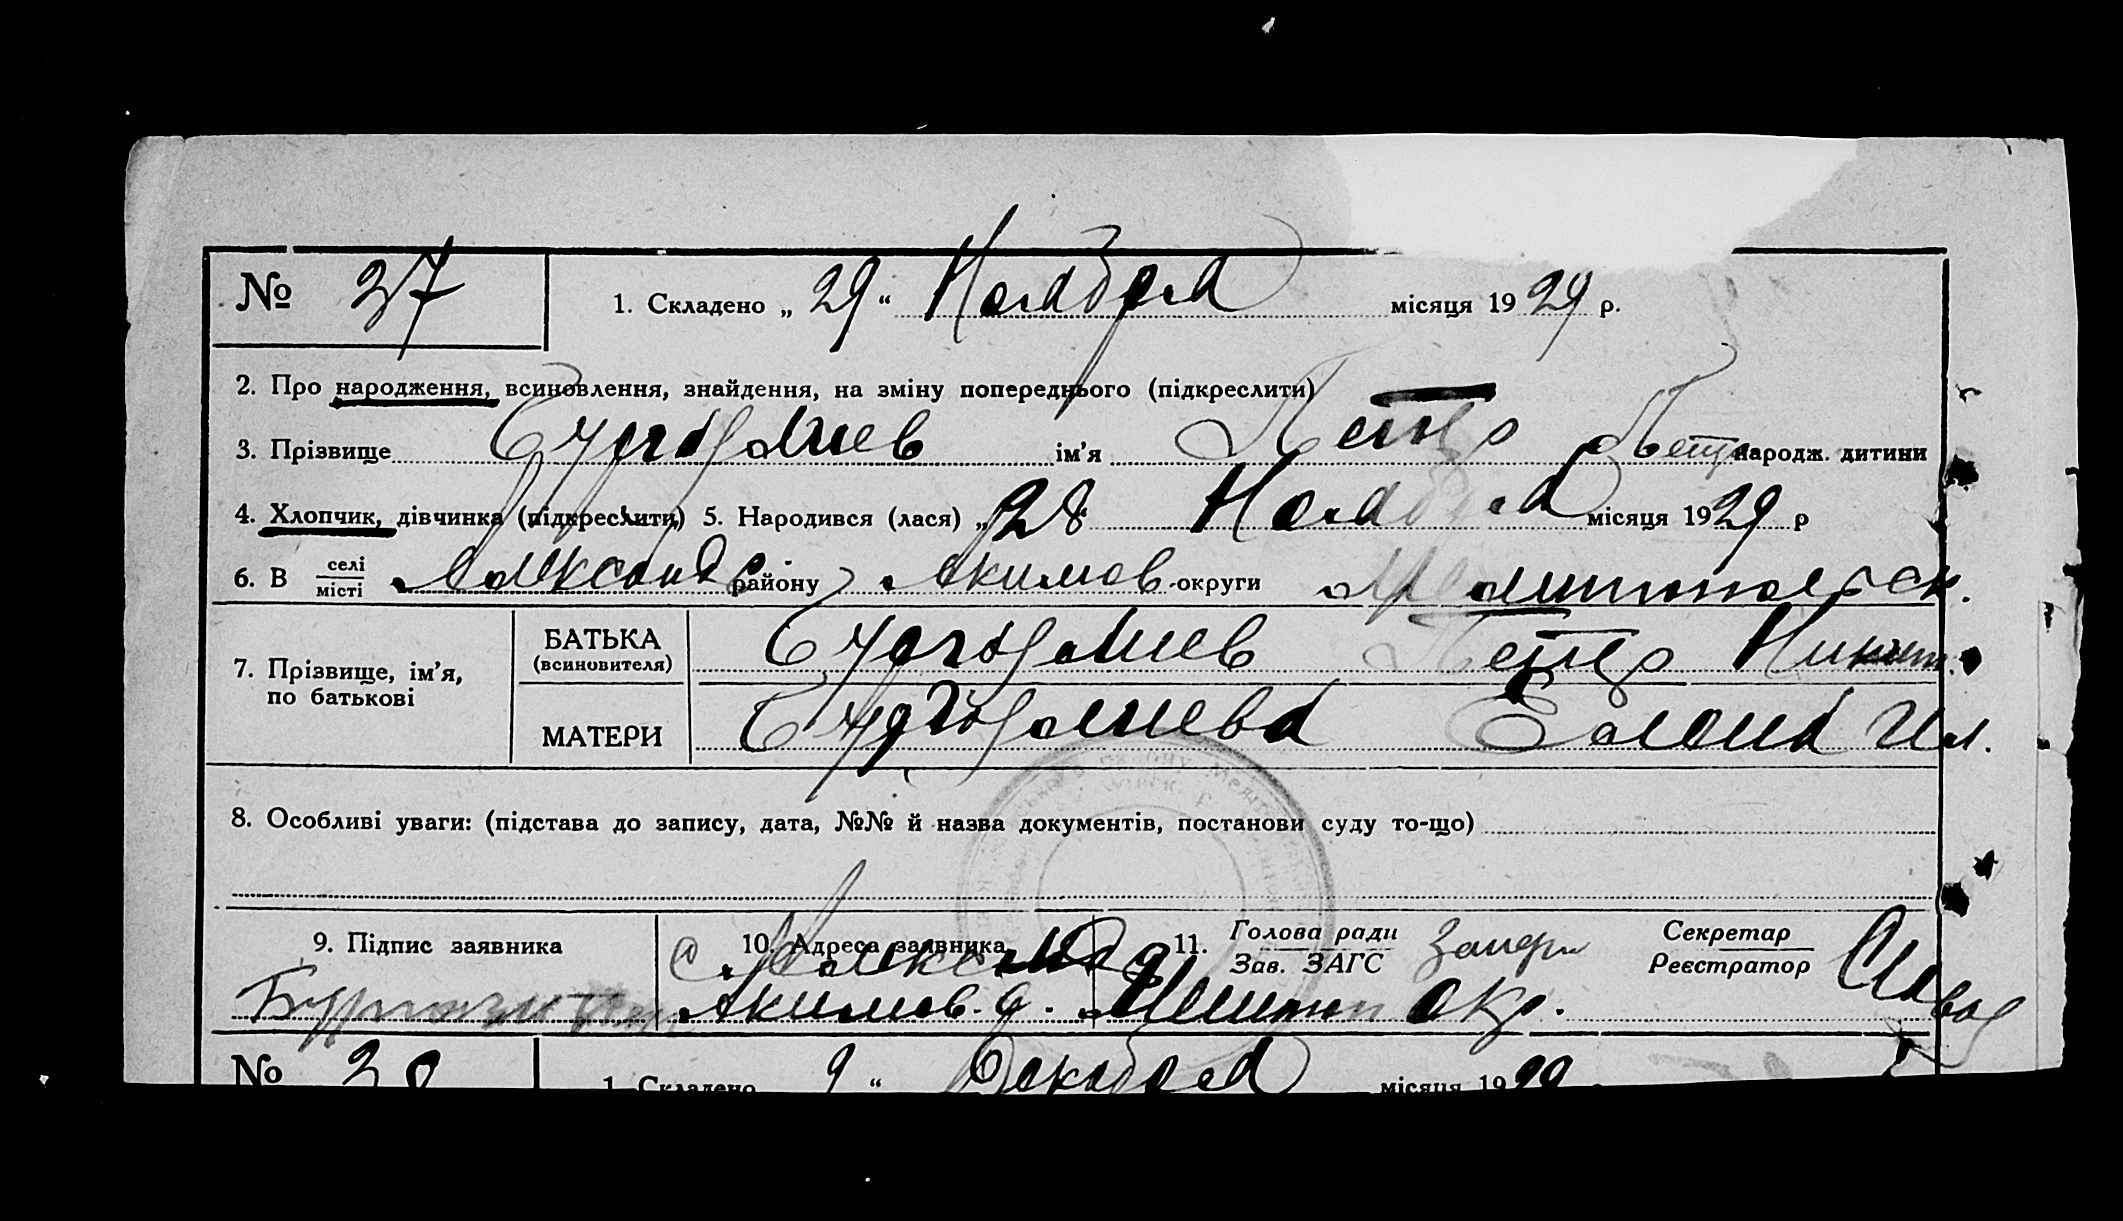 № 37 1. Складено „ 29 “ Ноября місяця 1929 р.
2. Про народження, всиновлення, знайдення, на зміну попереднього (підкреслити)
3. Прізвище ім'я Петр Пет народж. дитини
4. Хлопчик, дівчинка (підкреслити) 5. Народився (лася) „28 Ноября місяця 1929 р
6. В селі Александр району Акимов. округи Мелитопольск.
місті
7. Прізвище, ім'я, по батькові
БАТЬКА (всиновителя) Петр Никит.
МАТЕРИ Елена Ил.
8. Особливі уваги: (підстава до запису, дата, №№ й назва документів, постанови суду то-що)
9. Підпис заявника 10. Адреса заявника 11. Голова ради Секретар
Зав. ЗАГС Реєстратор
с Александр
Акимов. р. Мелитоп окр.
№ 38 1. Складено 9 “ Декабря місяця 1929